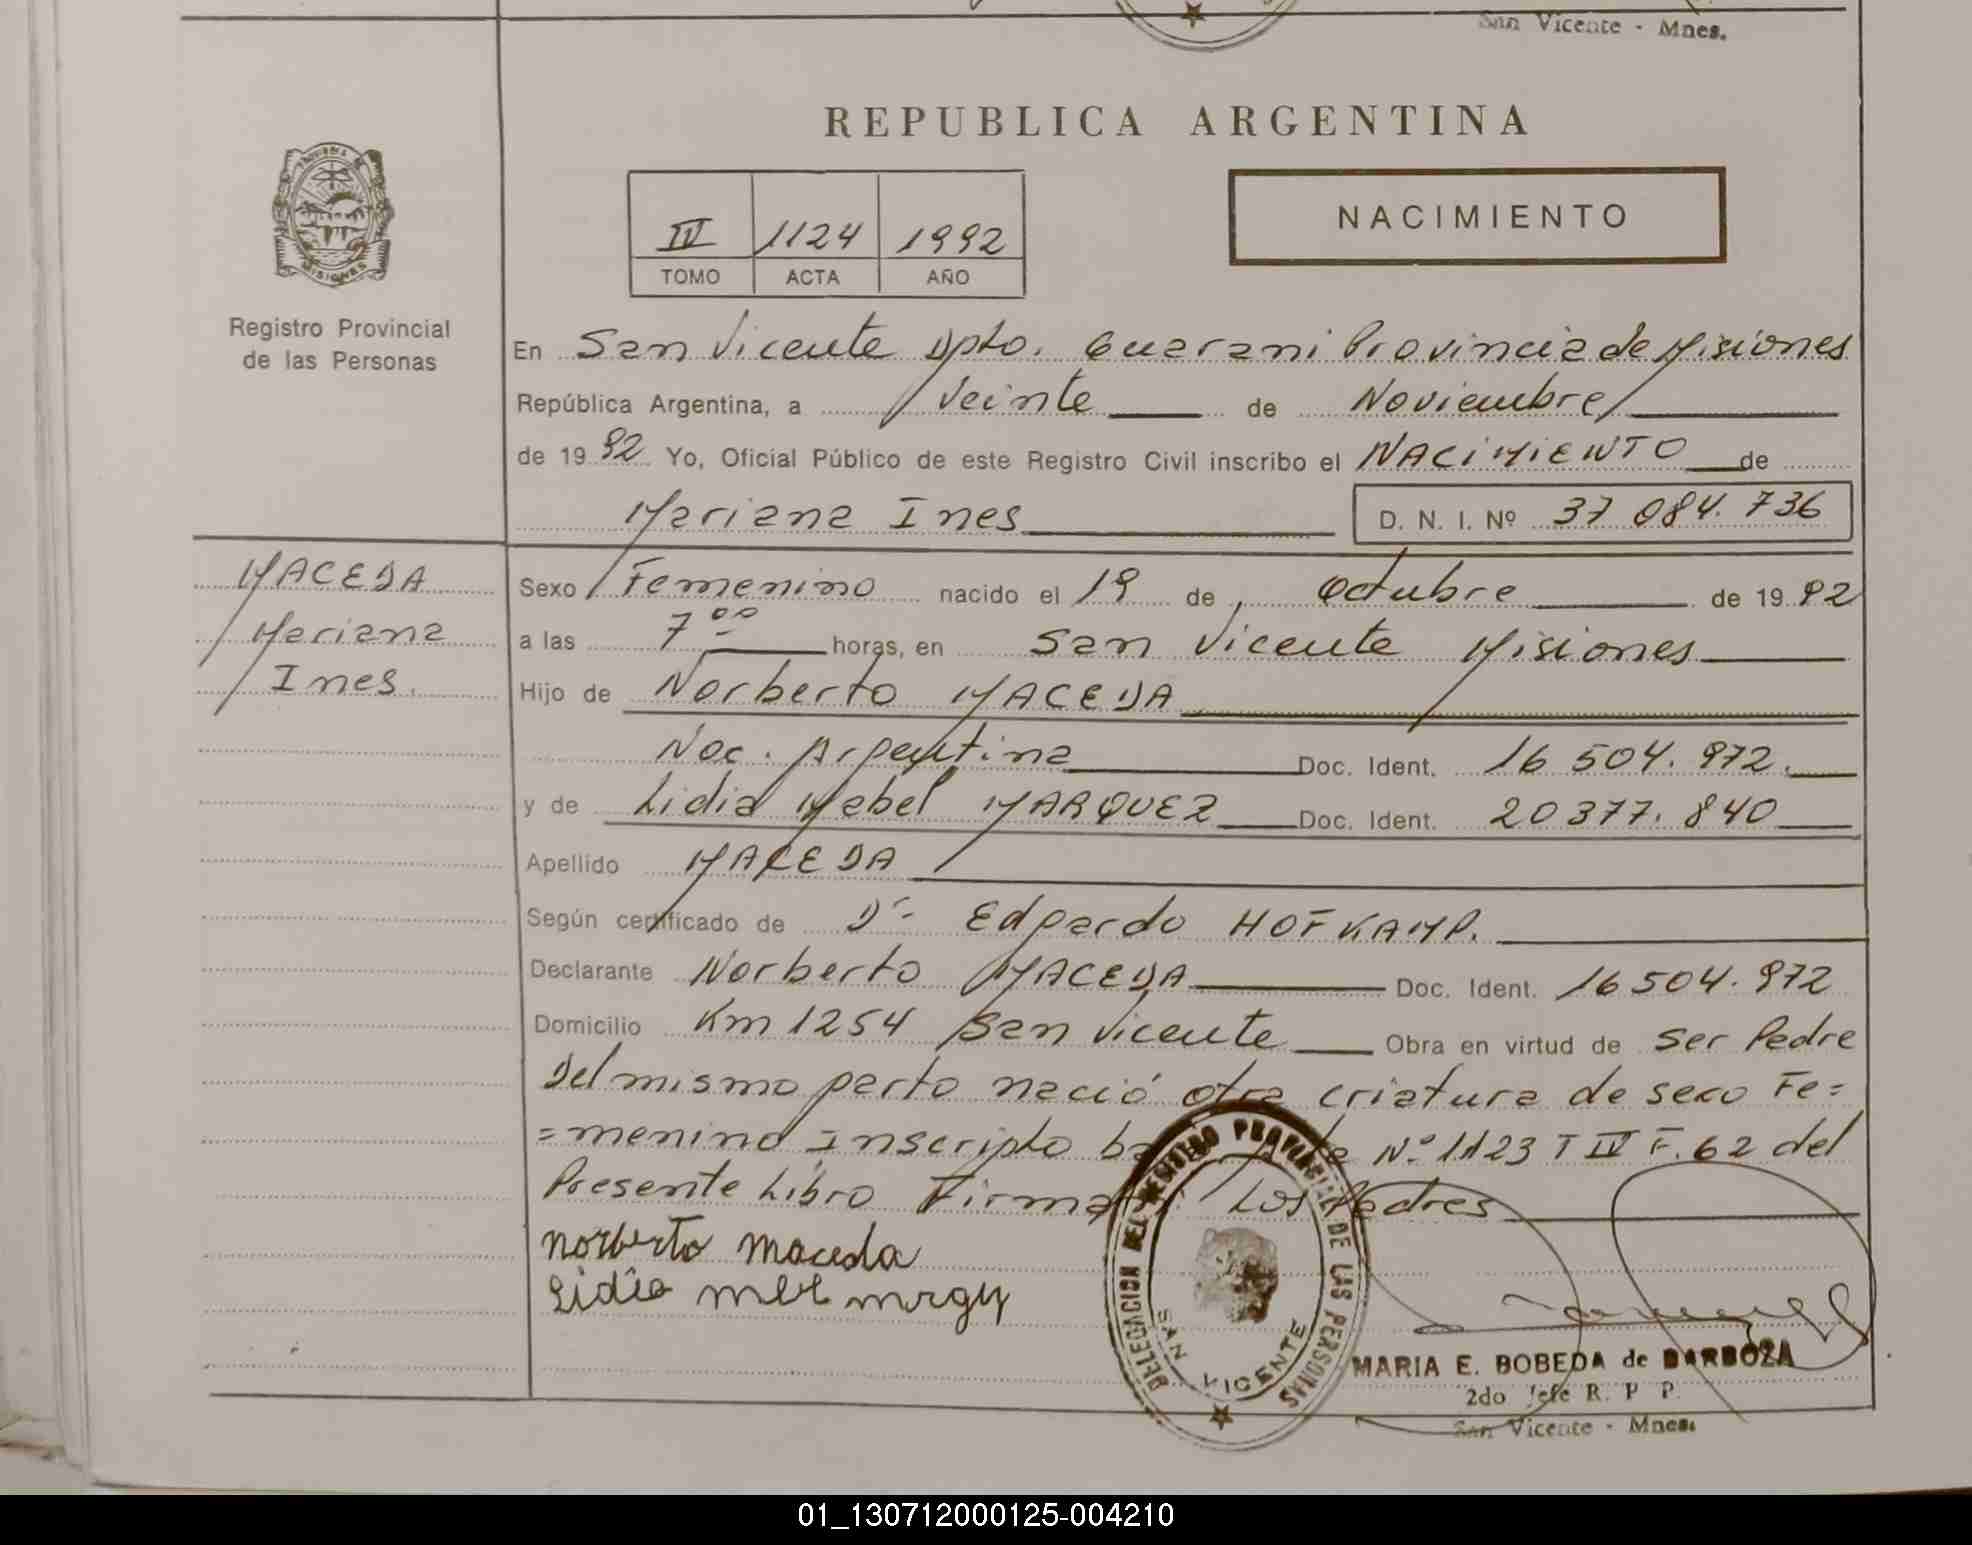 San Vicente - Mnes.
REPUBLICA ARGENTINA
IV 1124 1992
TOMO ACTA AÑO
NACIMIENTO
PROVINCIA DE
MISIONES
Registro Provincial
de las Personas
En San Vicente Dpto. Guarani Provincia de Misiones
República Argentina, a Veinte de Noviembre
de 19 92 Yo, Oficial Público de este Registro Civil inscribo el NACIMIENTO de
Mariana Ines D. N. I. Nº 37 084. 736
MACEDA
Mariana
Ines.
Sexo Femenino nacido el 19 de Octubre de 19 92
a las 7 00 horas, en San Vicente Misiones
Hijo de Norberto MACEDA
Nac. Argentina Doc. Ident. 16 504. 972.
y de Lidia Mabel MARQUEZ Doc. Ident. 20 377. 840
Apellido MACEDA
Según certificado de Dr. Edgardo HOFKAMP.
Declarante Norberto MACEDA Doc. Ident. 16 504. 972
Domicilio Km 1254 San Vicente Obra en virtud de Ser Padre
Del mismo parto nació otra criatura de sexo Fe=
=menino Inscripto Nº 1123 T IV F. 62 del
Presente Libro Firma Los Padres
Norberto Maceda
Lidia
DELEGACION DEL REGISTRO PROVINCIAL DE LAS PERSONAS
SAN VICENTE
MARIA E. BOBEDA de BARBOZA
2do Jefe R. P P.
San Vicente - Mnes.
01_130712000125-004210